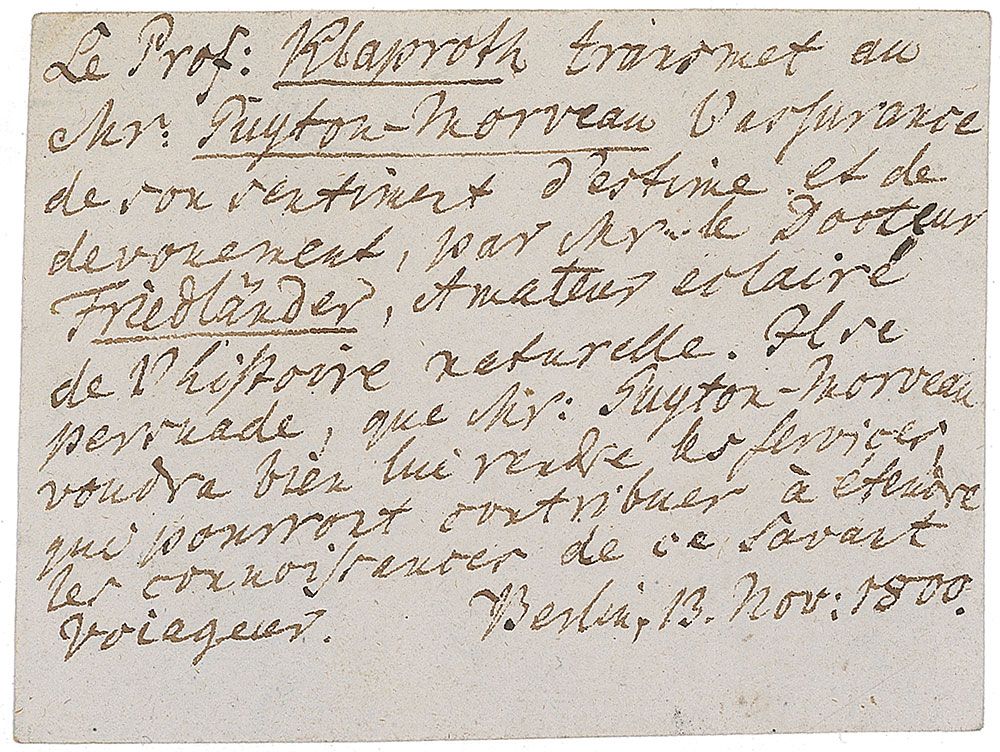 Le Prof: Klaproth transmet au
Mr: Guyton-Morveau l'assurance
de son sentiment d'estime et de
devouement, par Mr. le Docteur
Friedländer, Amateur eclairé
de l'histoire naturelle. Il se
persuade, que Mr: Guyton-Morveau
voudra bien lui rendre les services,
qui pourront contribuer à étendre
les connoissances de ce Savant
Voiageur. Berlin, 13. Nov: 1800.